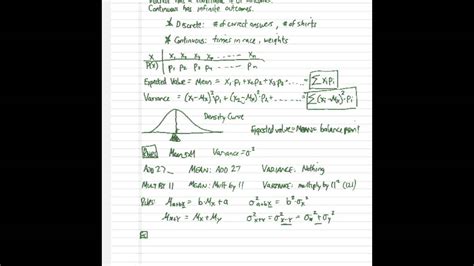 Discrete has a countable # of outcomes.
Continuous has infinite outcomes.
* Discrete: # of correct answers, # of shirts
* Continuous: times in race, weights
X x₁ x₂ x₃ ..... xₙ
P(X) p₁ p₂ p₃ ..... pₙ
Expected Value = Mean = x₁p₁ + x₂p₂ + x₃p₃ ...... = Σxᵢpᵢ
Variance = (x₁-μₓ)²p₁ + (x₂-μₓ)²p₂ + ...... = Σ(xᵢ-μₓ)²·pᵢ
Density Curve
Expected value = MEAN = balance point
Rules Mean = μ Variance = σ²
ADD 27 MEAN: ADD 27 VARIANCE: Nothing
MULT BY 11 MEAN: Mult by 11 VARIANCE: multiply by 11² (121)
Rules: μₐ₊bₓ = b·Mₓ + a σ²ₐ₊bₓ = b²·σₓ²
Mₓ₊ᵧ = Mₓ + Mᵧ σ²ₓ₊ᵧ = σ²ₓ₋ᵧ = σₓ² + σᵧ²